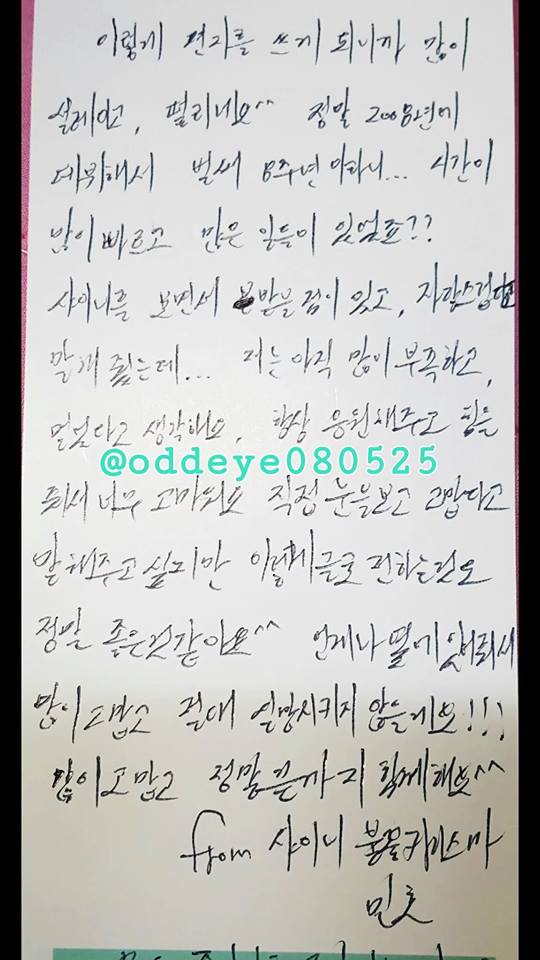 이렇게 편지를 쓰게 되니까 많이
설레이고, 떨리네요^^ 정말 2008년에
데뷔해서 벌써 8주년 이라니... 시간이
많이 빠르고 많은 일들이 있었죠??
샤이니를 보면서 본받을점이 있고, 자랑스럽다고
말께 줬는데... 저는 아직 많이 부족하고,
멀었다고 생각해요, 항상 응원해주고 힘을
@oddeye080525
줘서 너무 고마워요 직접 눈을보고 고맙다고
말 해주고 싶지만 이렇게 글로 전하는것도
정말 좋은것같아요^^ 언제나 옆에 있어줘서
많이 고맙고 절대 실망시키지 않을게요!!!
많이 고맙고 정말 끝까지 함께해요^^
from 샤이니 불꽃카리스마
민호